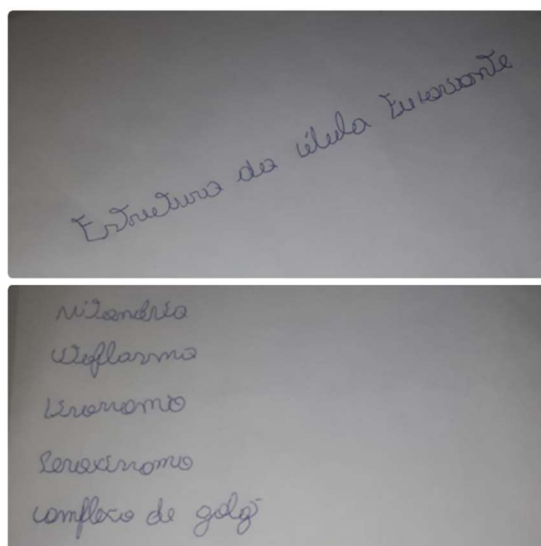 Estrutura da célula Eucarionte
Mitondria
Citoplasma
Lisossomo
Peroxissomo
complexo de golgi